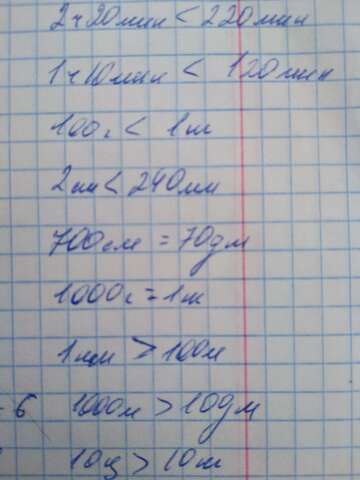 2ч20мин < 220мин
1ч10мин < 120мин
100г < 1т
2см < 240мм
700см = 70дм
1000г = 1т
1км > 100м
6 1000м > 10дм
10ц > 10т